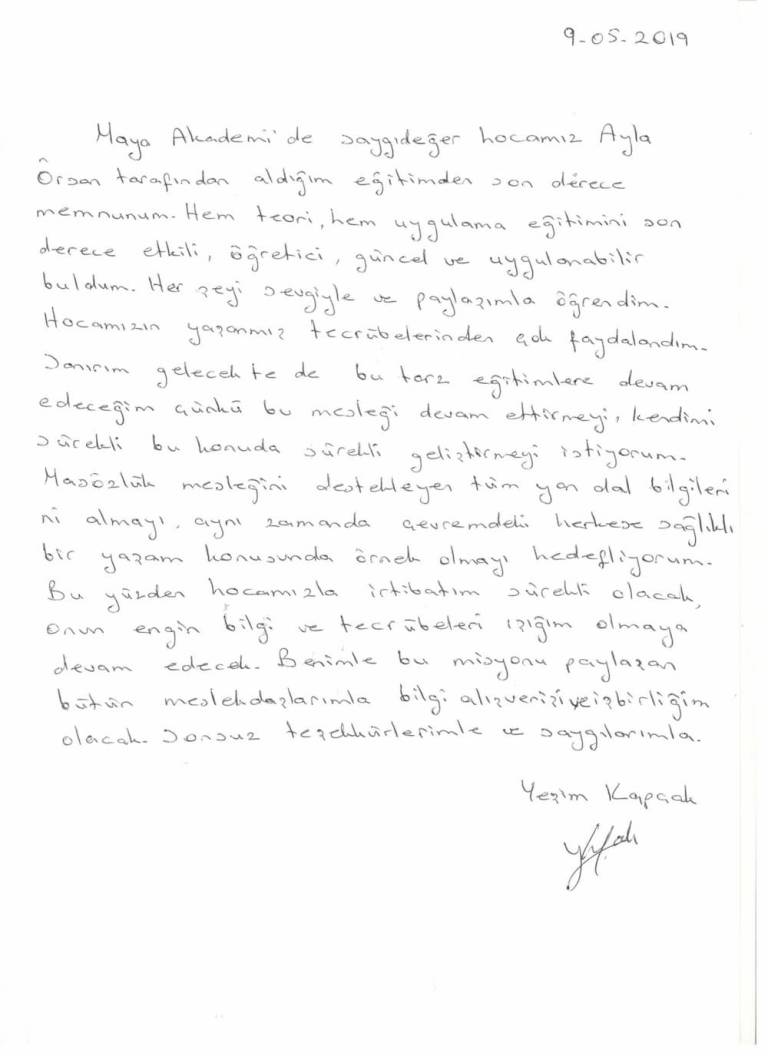 9-05-2019
Maya Akademi'de saygıdeğer hocamız Ayla
Örsan tarafından aldığım eğitimden son derece
memnunum. Hem teori, hem uygulama eğitimini son
derece etkili, öğretici, güncel ve uygulanabilir
buldum. Her şeyi sevgiyle ve paylaşımla öğrendim.
Hocamızın yaşanmış tecrübelerinden çok faydalandım.
Sanırım gelecekte de bu tarz eğitimlere devam
edeceğim çünkü bu mesleği devam ettirmeyi, kendimi
sürekli bu konuda sürekli geliştirmeyi istiyorum.
Masözlük mesleğini destekleyen tüm yan dal bilgileri
ni almayı, aynı zamanda çevremdeki herkese sağlıklı
bir yaşam konusunda örnek olmayı hedefliyorum.
Bu yüzden hocamızla irtibatım sürekli olacak,
onun engin bilgi ve tecrübeleri ışığım olmaya
devam edecek. Benimle bu misyonu paylaşan
bütün meslekdaşlarımla bilgi alışverişi ve işbirliğim
olacak. Sonsuz teşekkürlerimle ve saygılarımla.
Yeşim Kapçak